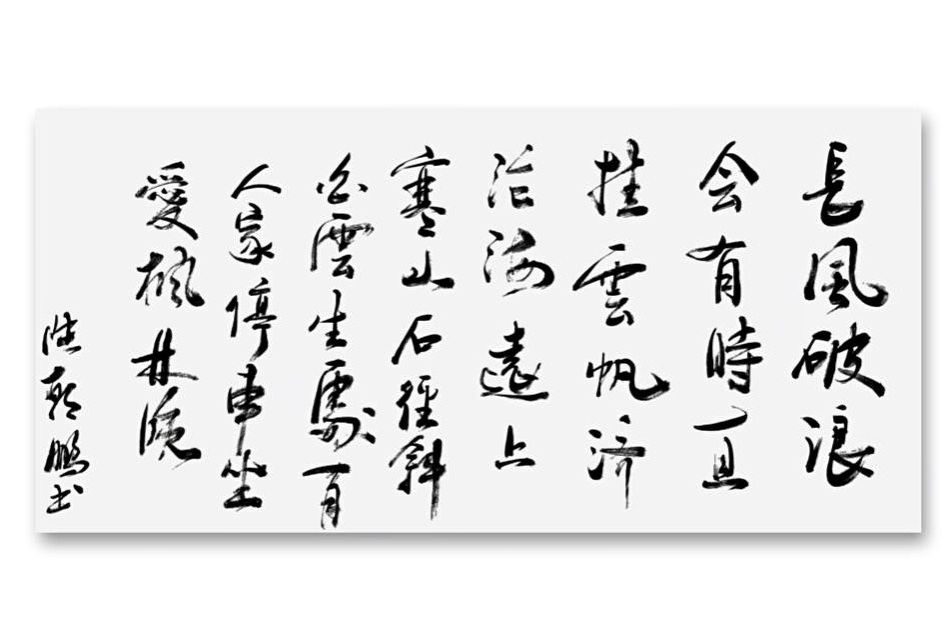 長風破浪
会有時直
挂雲帆济
沧海遠上
寒山石徑斜
白雲生處有
人家停車坐
愛楓林晚
朝鵬书